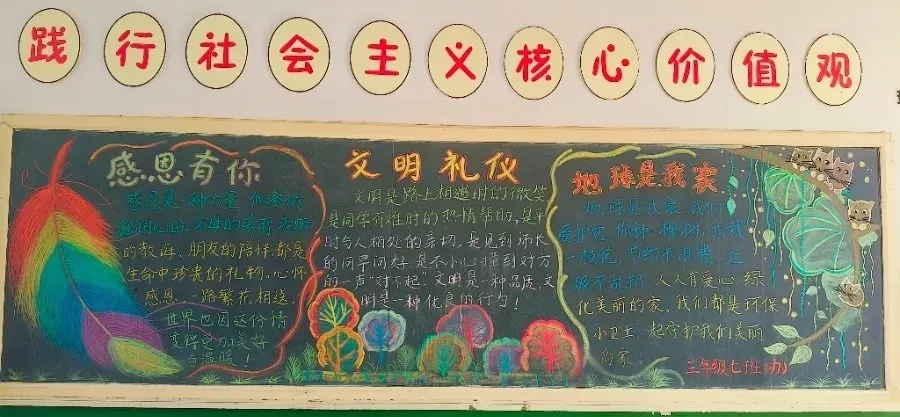 践行社会主义核心价值观
感恩有你
感恩是一种力量
滋润心田,父母的养育,老师
的教诲,朋友的陪伴,都是
生命中珍贵的礼物,心怀
感恩,一路繁花相送,
世界也因这份情
变得更加美好
与温暖!
文明礼仪
文明是路上相遇时的微笑
是同学有难时的热情帮助,是平
时与人相处的亲切,是见到师长
的问早问好,是不小心撞到对方
的一声“对不起”文明是一种品质,文
明是一种优良的行为!
地球是我家
地球是我家,我们
爱护它,你种一棵树,我栽
一枝花,节约不浪费,垃
圾不乱扔,人人有爱心,绿
化美丽的家,我们都是环保
小卫士,起守护我们美丽
的家。
三年级七班(办)